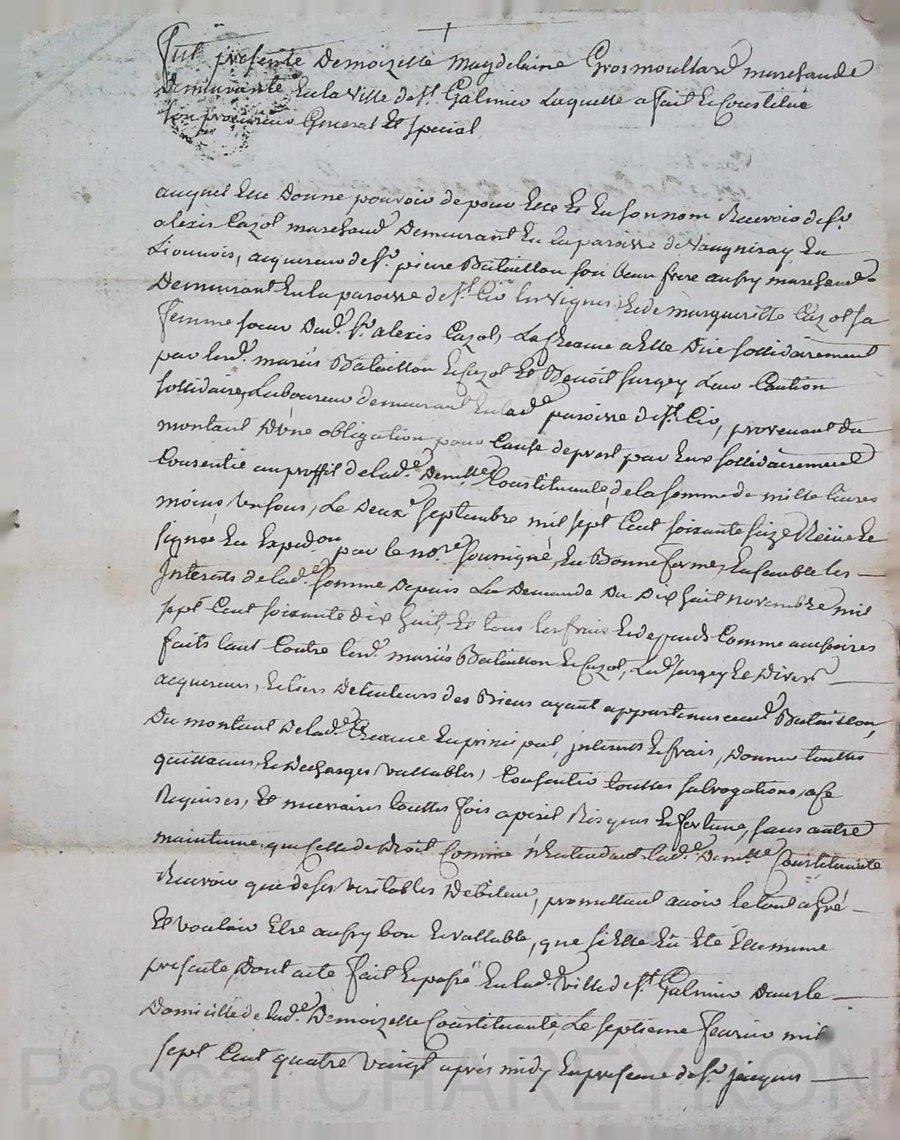 Fut présente Demoizelle Magdelaine Grosmoullard marchande
Demeurante En la ville de St. Galmier Laquelle a fait Et Constitué
son procureur General Et special
auquel Elle Donne pouvoir de pour Elle Et En son nom Recevoir de Sr.
alexis Cazot marchand Demeurant En la paroisse de Vaugneray En
Lionnois, acquereur de Sr. pierre Bataillon son beau frere aussy marchand
Demeurant En la paroisse de St. Cir les Vignes, Et de margueritte Cazot sa
femme soeur Dud. Sr. alexis Cazot, La Creance a Elle Düe sollidairement
par lesd. mariés Bataillon Et Cazot Et Benoit Surgey Leur Caution
sollidaire, Laboureur demeurant En lad. e paroisse de St. Cir, provenant du
montant D'une obligation pour Cause de prest par Eux sollidairement
Consentie au proffit de lad. e Demlle. Constituante de la somme de mille livres
moins un sous, Le Deux septembre mil sept Cent soixante seize Reçüe Et
signée En Exped. on par le no. re soussigné, En Bonne forme, Ensemble les
Interets de lad. e somme Depuis La Demande Du Dix huit novembre mil
sept Cent soixante dix huit, Et tous les frais Et depends Comme accessoires
faits tant Contre lesd. mariés Bataillon Et Cazot, Led. Surgey Et Divers
acquereurs, Et tiers Detenteurs des Biens ayant appartenus aud. Bataillon,
Du montant De lad. e Creance En principal, interets Et frais, Donner touttes
quittances, Et Decharges vallables, Consentir touttes subrogations, a ce
Requises, Et necessaires touttes fois a peril Risques Et fortune, sans autre
maintenue, que Celle de Droit Comme N'Entendant lad. e Demlle. Constituante
Recevoir que de ses veritables Debiteurs, promettant avoir le tout a Gré
Et vouloir Etre aussy bon Et vallable, que si Elle Eü Eté Elle meme
presente, Dont acte fait Et passé En lad. ville de St. Galmier Dans le
Domicille de lad. e Demoizelle Constituante, Le septieme fevrier mil
sept Cent quatre vingt après midy En presence de Sr. jacques
Pascal CHAREYRON